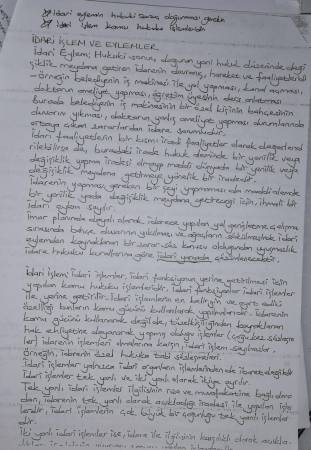 İdari eylemin hukuki sonuç doğurması gerekir
İdari işlem kamu hukuku işlemleridir
İDARİ İŞLEM VE EYLEMLER
İdari Eylem: Hukuki sonuç doğuran yani hukuk düzeninde deği
şiklik meydana getiren idarenin davranış, hareket ve faaliyetleridi
-Örneğin belediyenin iş makinesi ile yol yapması, kanal açması,
doktorun ameliyat yapması, öğretim üyesinin ders anlatması
burada belediyenin iş makinesinin bir özel kişinin bahçesinin
duvarını yıkması, doktorun yanlış ameliyat yapması durumlarında
ortaya çıkan zararlardan idare sorumludur.
İdari faaliyetlerin bir kısmı iradi faaliyetler olarak değerlend
rilebilirse de, buradaki irade hukuk aleminde bir yenilik veya
değişiklik yapma iradesi olmayıp maddi dünyada bir yenilik veya
değişiklik meydana getirmeye yönelik bir iradedir.
İdarenin yapması gereken bir şeyi yapmaması da maddi alemde
bir yenilik yada değişiklik meydana getireceği için, ihmali bir
idari eylem sayılır.
İmar planında dayalı olarak idarece yapılan yol genişletme çalışma
sırasında bahçe duvarının yıkılması ve ağaçların sökülmesinde idari
eylemden kaynaklanan bir zarar söz konusu olduğundan uyuşmazlık
idare hukuku kurallarına göre idari yargıda çözümlenecektir.
İdari İşlem: İdari işlemler, idari fonksiyonun yerine getirilmesi için
yapılan kamu hukuku işlemleridir. İdari fonksiyonlar idari işlemler
ile yerine getirilir. İdari işlemlerin en belirgin ve ayırt edici
özelliği bunların kamu gücünü kullanarak yapılmalarıdır. İdarenin
kamu gücünü kullanarak değil de, tüzelkişiliğinden kaynaklanan
hak ehliyetine dayanarak yapmış olduğu işlemler (çoğu kez sözleşme
ler) idarenin işlemleri olmalarına karşın, idari işlem sayılmazlar.
Örneğin, idarenin özel hukuka tabi sözleşmeleri.
İdari işlemler yalnızca idari organların işlemlerinden de ibaret değildir
İdari işlemler tek yanlı ve iki yanlı olarak ikiye ayrılır.
Tek yanlı idari işlemler ilgilisinin rıza ve muvafakatine bağlı olma
dan, idarenin tek yanlı olarak açıkladığı iradesi ile yapılan işlem
lerdir. İdari işlemlerin çok büyük bir çoğunluğu tek yanlı işlemler
dir.
İki yanlı idari işlemler ise, idare ile ilgilisinin karşılıklı olarak açıkla-